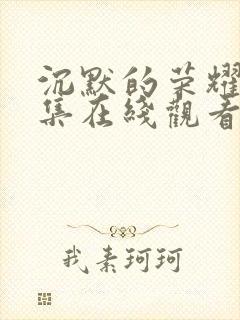 沉默的荣耀
集在綫觀看
我素珂珂